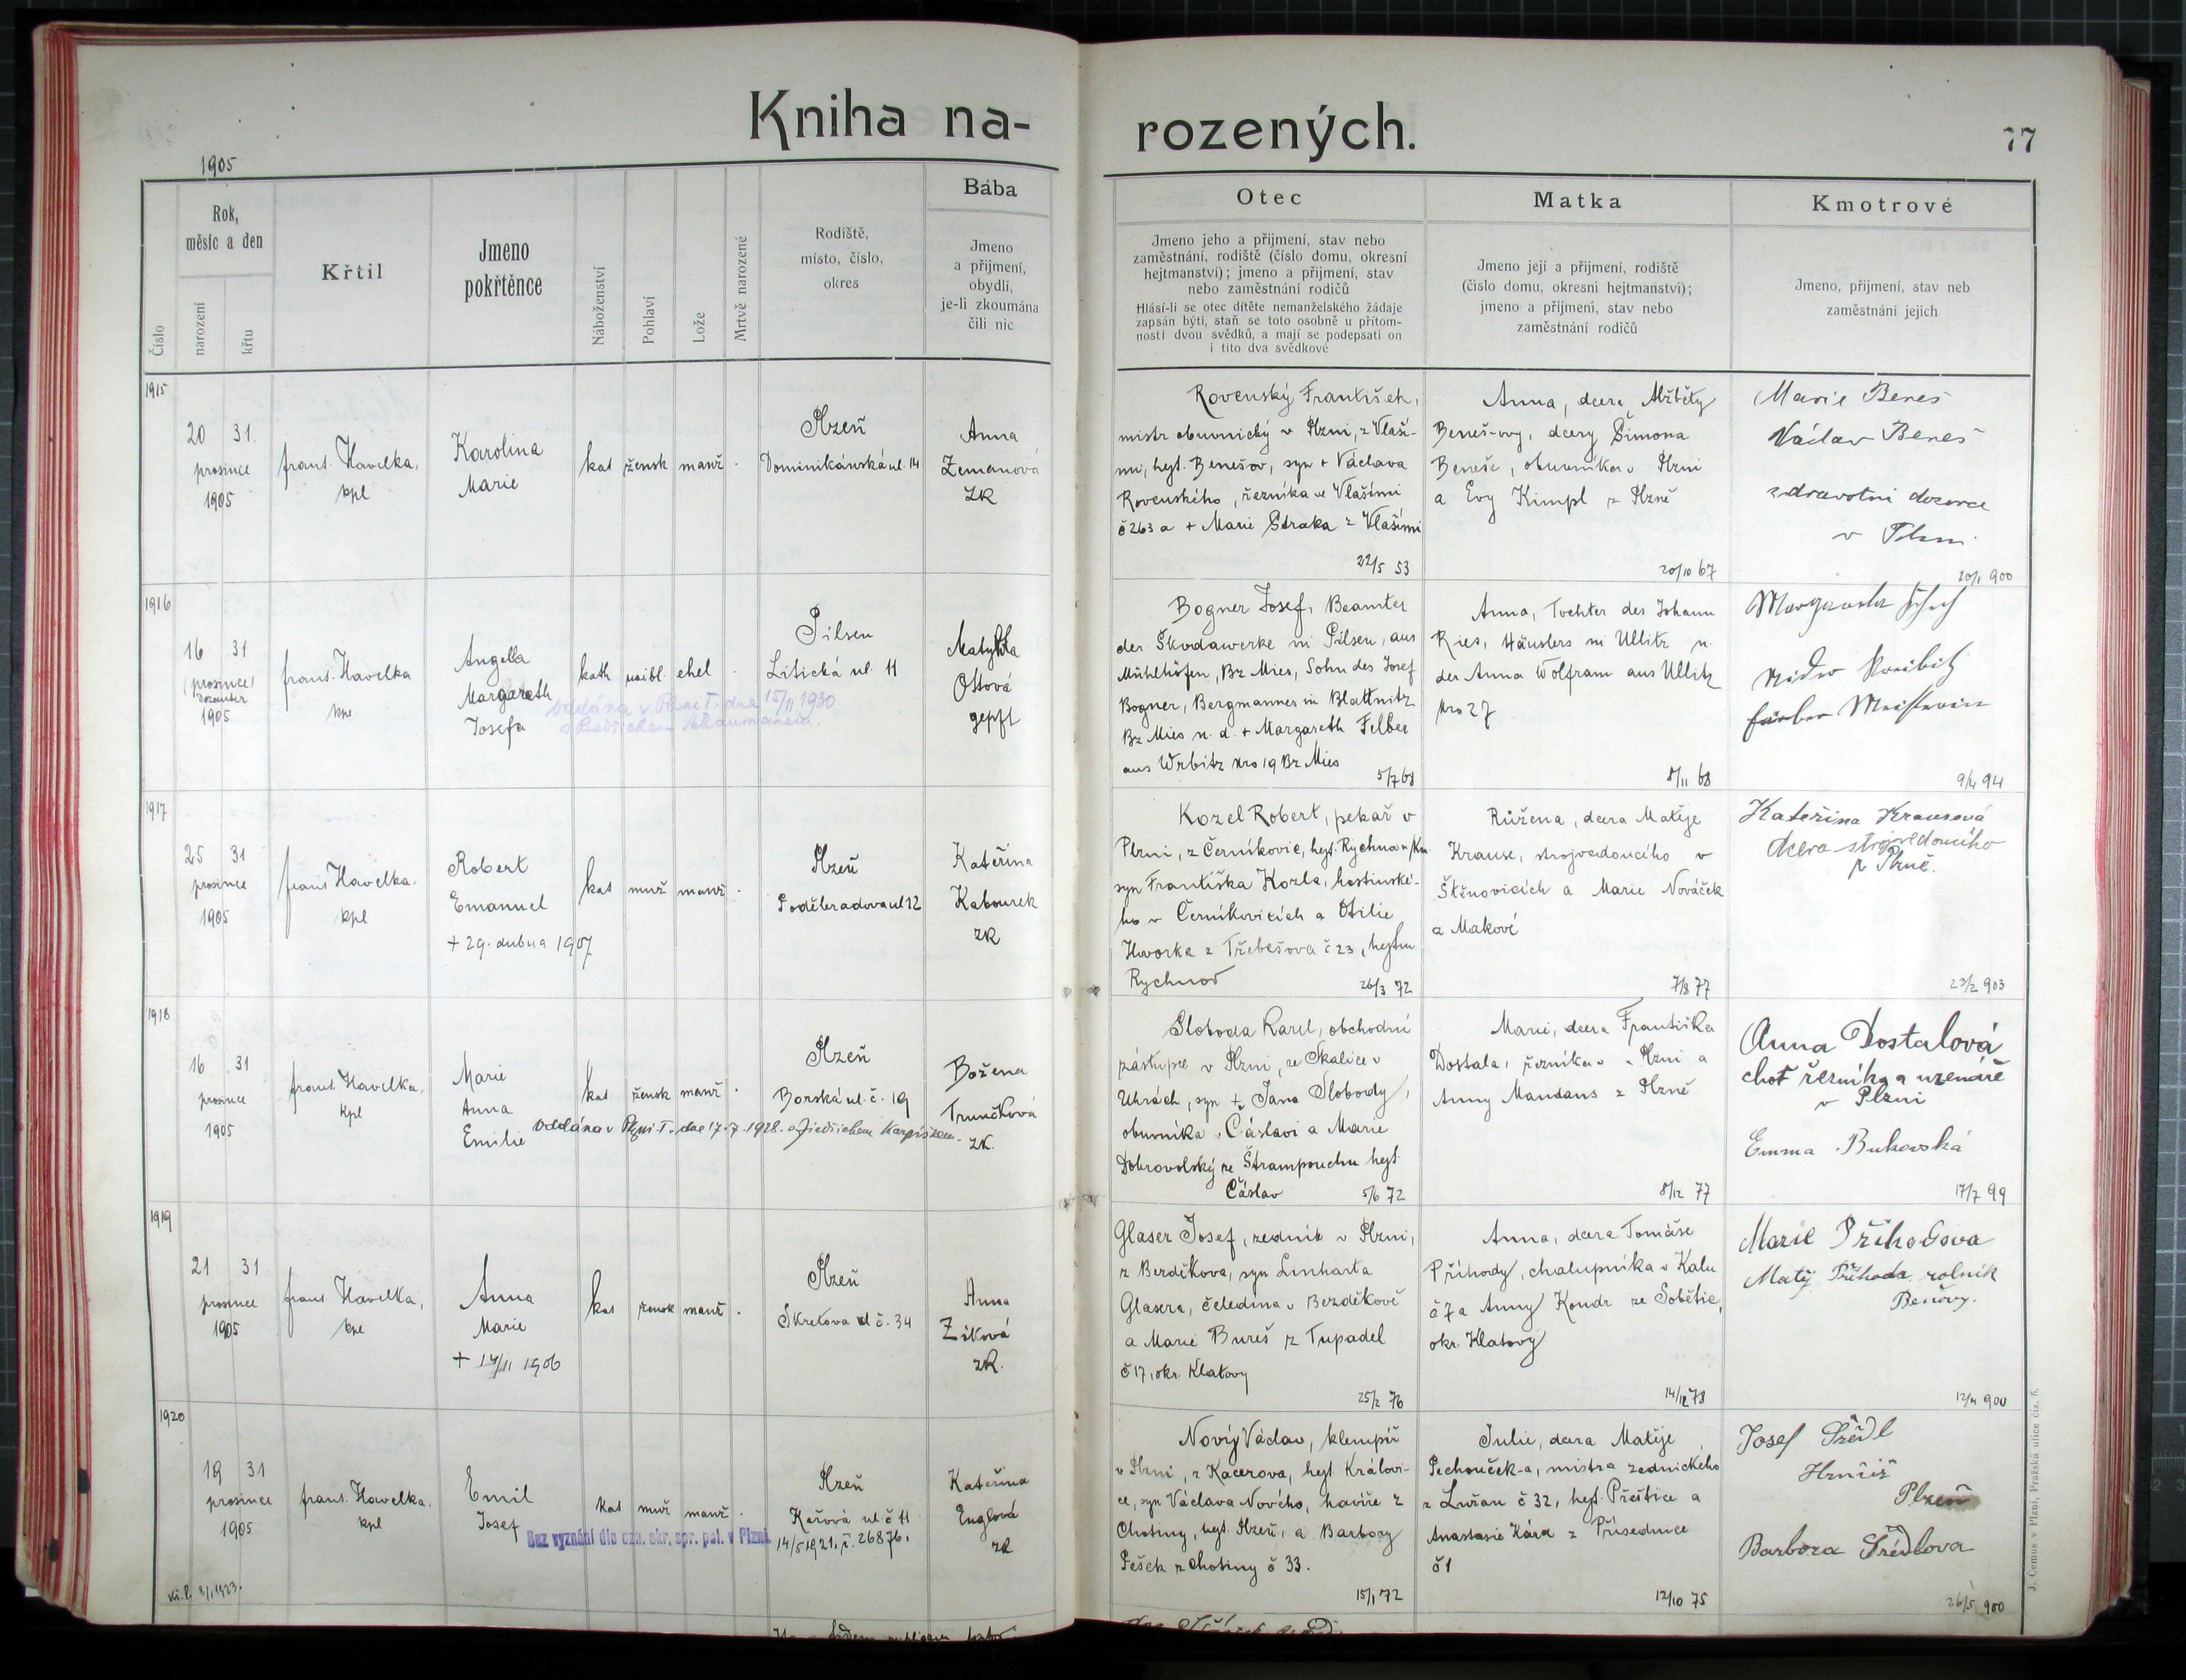 Kniha na-
rozených.
77
1905
Číslo
Rok,
měsíc a den
narození
křtu
Křtil
Jmeno
pokřtěnce
Náboženství
Pohlaví
Lože
Mrtvě narozené
Rodiště,
místo, číslo,
okres
Bába
Jmeno
a přijmení,
obydlí,
je-li zkoumána
čili nic
Otec
Jmeno jeho a přijmení, stav nebo
zaměstnání, rodiště (číslo domu, okresní
hejtmanství); jmeno a přijmení, stav
nebo zaměstnání rodičů
Hlásí-li se otec dítěte nemanželského žádaje
zapsán býti, staň se toto osobně u přítom-
nosti dvou svědků, a mají se podepsati on
i tito dva svědkové
Matka
Jmeno její a přijmení, rodiště
(číslo domu, okresní hejtmanství);
jmeno a přijmení, stav nebo
zaměstnání rodičů
Kmotrové
Jmeno, přijmení, stav neb
zaměstnání jejich
1915
20 31.
prosince
1905
frant. Havelka,
kpl
Karolina
Marie
kat žensk manž .
Plzeň
Dominikánská ul. 14
Anna
Zemanová
zk
Rovenský František,
mistr obuvnický v Plzni, z Vlaši-
mi, hejt. Benešov, syn + Václava
Rovenského, řezníka ve Vlašimi
č 263 a + Marie Straka z Vlašimi
22/5 53
Anna, dcera Alžběty
Beneš-ovy, dcery Šimona
Beneše, obuvníka v Plzni
a Evy Kimpl z Plzně
20/10 67
Marie Beneš
Václav Beneš
zdravotní dozorce
v Plzni.
20/1 900
1916
16 31
(prosince)
Dezember
1905
frant. Havelka
kpl
Angella
Margareth
Josefa
kath weibl. ehel .
oddána v Plzni I. dne 15/11 1930
s Bedřichem
Pilsen
Litická ul. 11
Matylda
Ottová
gepft
Bogner Josef, Beamter
der Škodawerke in Pilsen, aus
Mühlhöfen, Bz Mies, Sohn des Josef
Bogner, Bergmannes in Blattnitz
Bz Mies u. d. + Margareth Felber
aus Wrbitz Nro 19 Bz Mies
5/7 68
Anna, Tochter des Johann
Ries, Häuslers in Ullitz u.
der Anna Wolfram aus Ullitz
Nro 27
8/11 68
9/4 94
1917
25 31
prosince
1905
frant. Havelka.
kpl
Robert
Emanuel
+ 29. dubna 1907
kat muž manž .
Plzeň
Poděbradova ul 12
Kateřina
Kabourek
zk
Kozel Robert, pekař v
Plzni, z Černíkovic, hejt. Rychnov n/Kn
syn Františka Kozla, hostinské-
ho v Černíkovicích a Otilie
Hvorka z Třebešova č 23, hejtm
Rychnov
26/3 72
Růžena, dcera Matěje
Krause, strojvedoucího v
Štěnovicích a Marie Nováček
a Makové
7/8 77
Kateřina Krausová
dcera strojvedoucího
z Plzně.
23/2 903
1918
16 31
prosince
1905
frant. Havelka,
kpl
Marie
Anna
Emilie
kat žensk manž .
oddána v Plzni I. dne 17.7.1928. s Jindřichem Karpíškem.
Plzeň
Borská ul. č. 19
Božena
Trunčková
zk.
Sloboda Karel, obchodní
zástupce v Plzni, ze Skalice v
Uhrách, syn + Jana Slobody,
obuvníka v Čáslavi a Marie
Dobrovolský ze Štrampouchu hejt.
Čáslav
5/6 72
Marie, dcera Františka
Dostala, řezníka v Plzni a
Anny Mandaus z Plzně
8/12 77
Anna Dostalová
choť řezníka a uzenáře
v Plzni
Emma Bukovská
17/7 99
1919
21 31
prosince
1905
frant. Havelka,
kpl
Anna
Marie
+ 14/11 1906
kat žensk manž .
Plzeň
Škretova ul č. 34
Anna
Zíková
zk.
Glaser Josef, zedník v Plzni,
z Bezděkova, syn Linharta
Glasera, čeledína v Bezděkově
a Marie Bureš z Tupadel
č 17, okr. Klatovy
25/2 76
Anna, dcera Tomáše
Příhody, chalupníka v Kalu
č 7 a Anny Koudr ze Sobětic,
okr. Klatovy
14/12 78
Marie Příhodova
Matěj Příhoda rolník
Beňovy.
12/4 900
1920
19 31
prosince
1905
frant. Havelka,
kpl
Emil
Josef
kat muž manž .
Bez vyznání dle ozn. okr. spr. pol. v Plzni
14/5 1921. č. 26876.
Plzeň
Karlová ul. č 11
Kateřina
Englová
zk
Nový Václav, klempíř
v Plzni, z Kacerova, hejt Královi-
ce, syn Václava Nového, havíře z
Chotiny, hejt. Plzeň, a Barbory
Pešek z Chotiny č 33.
15/1 72
Julie, dcera Matěje
Pechouček-a, mistra zednického
z Lužan č 32, hejt. Přeštice a
Anastasie Kára z Přisednice
č 1
12/10 75
Josef Šrédl
Hrnčíř
Plzeň
Barbora Šrédlova
26/5 900
J. Čemus v Plzni, Pražská ulice čís. 8.